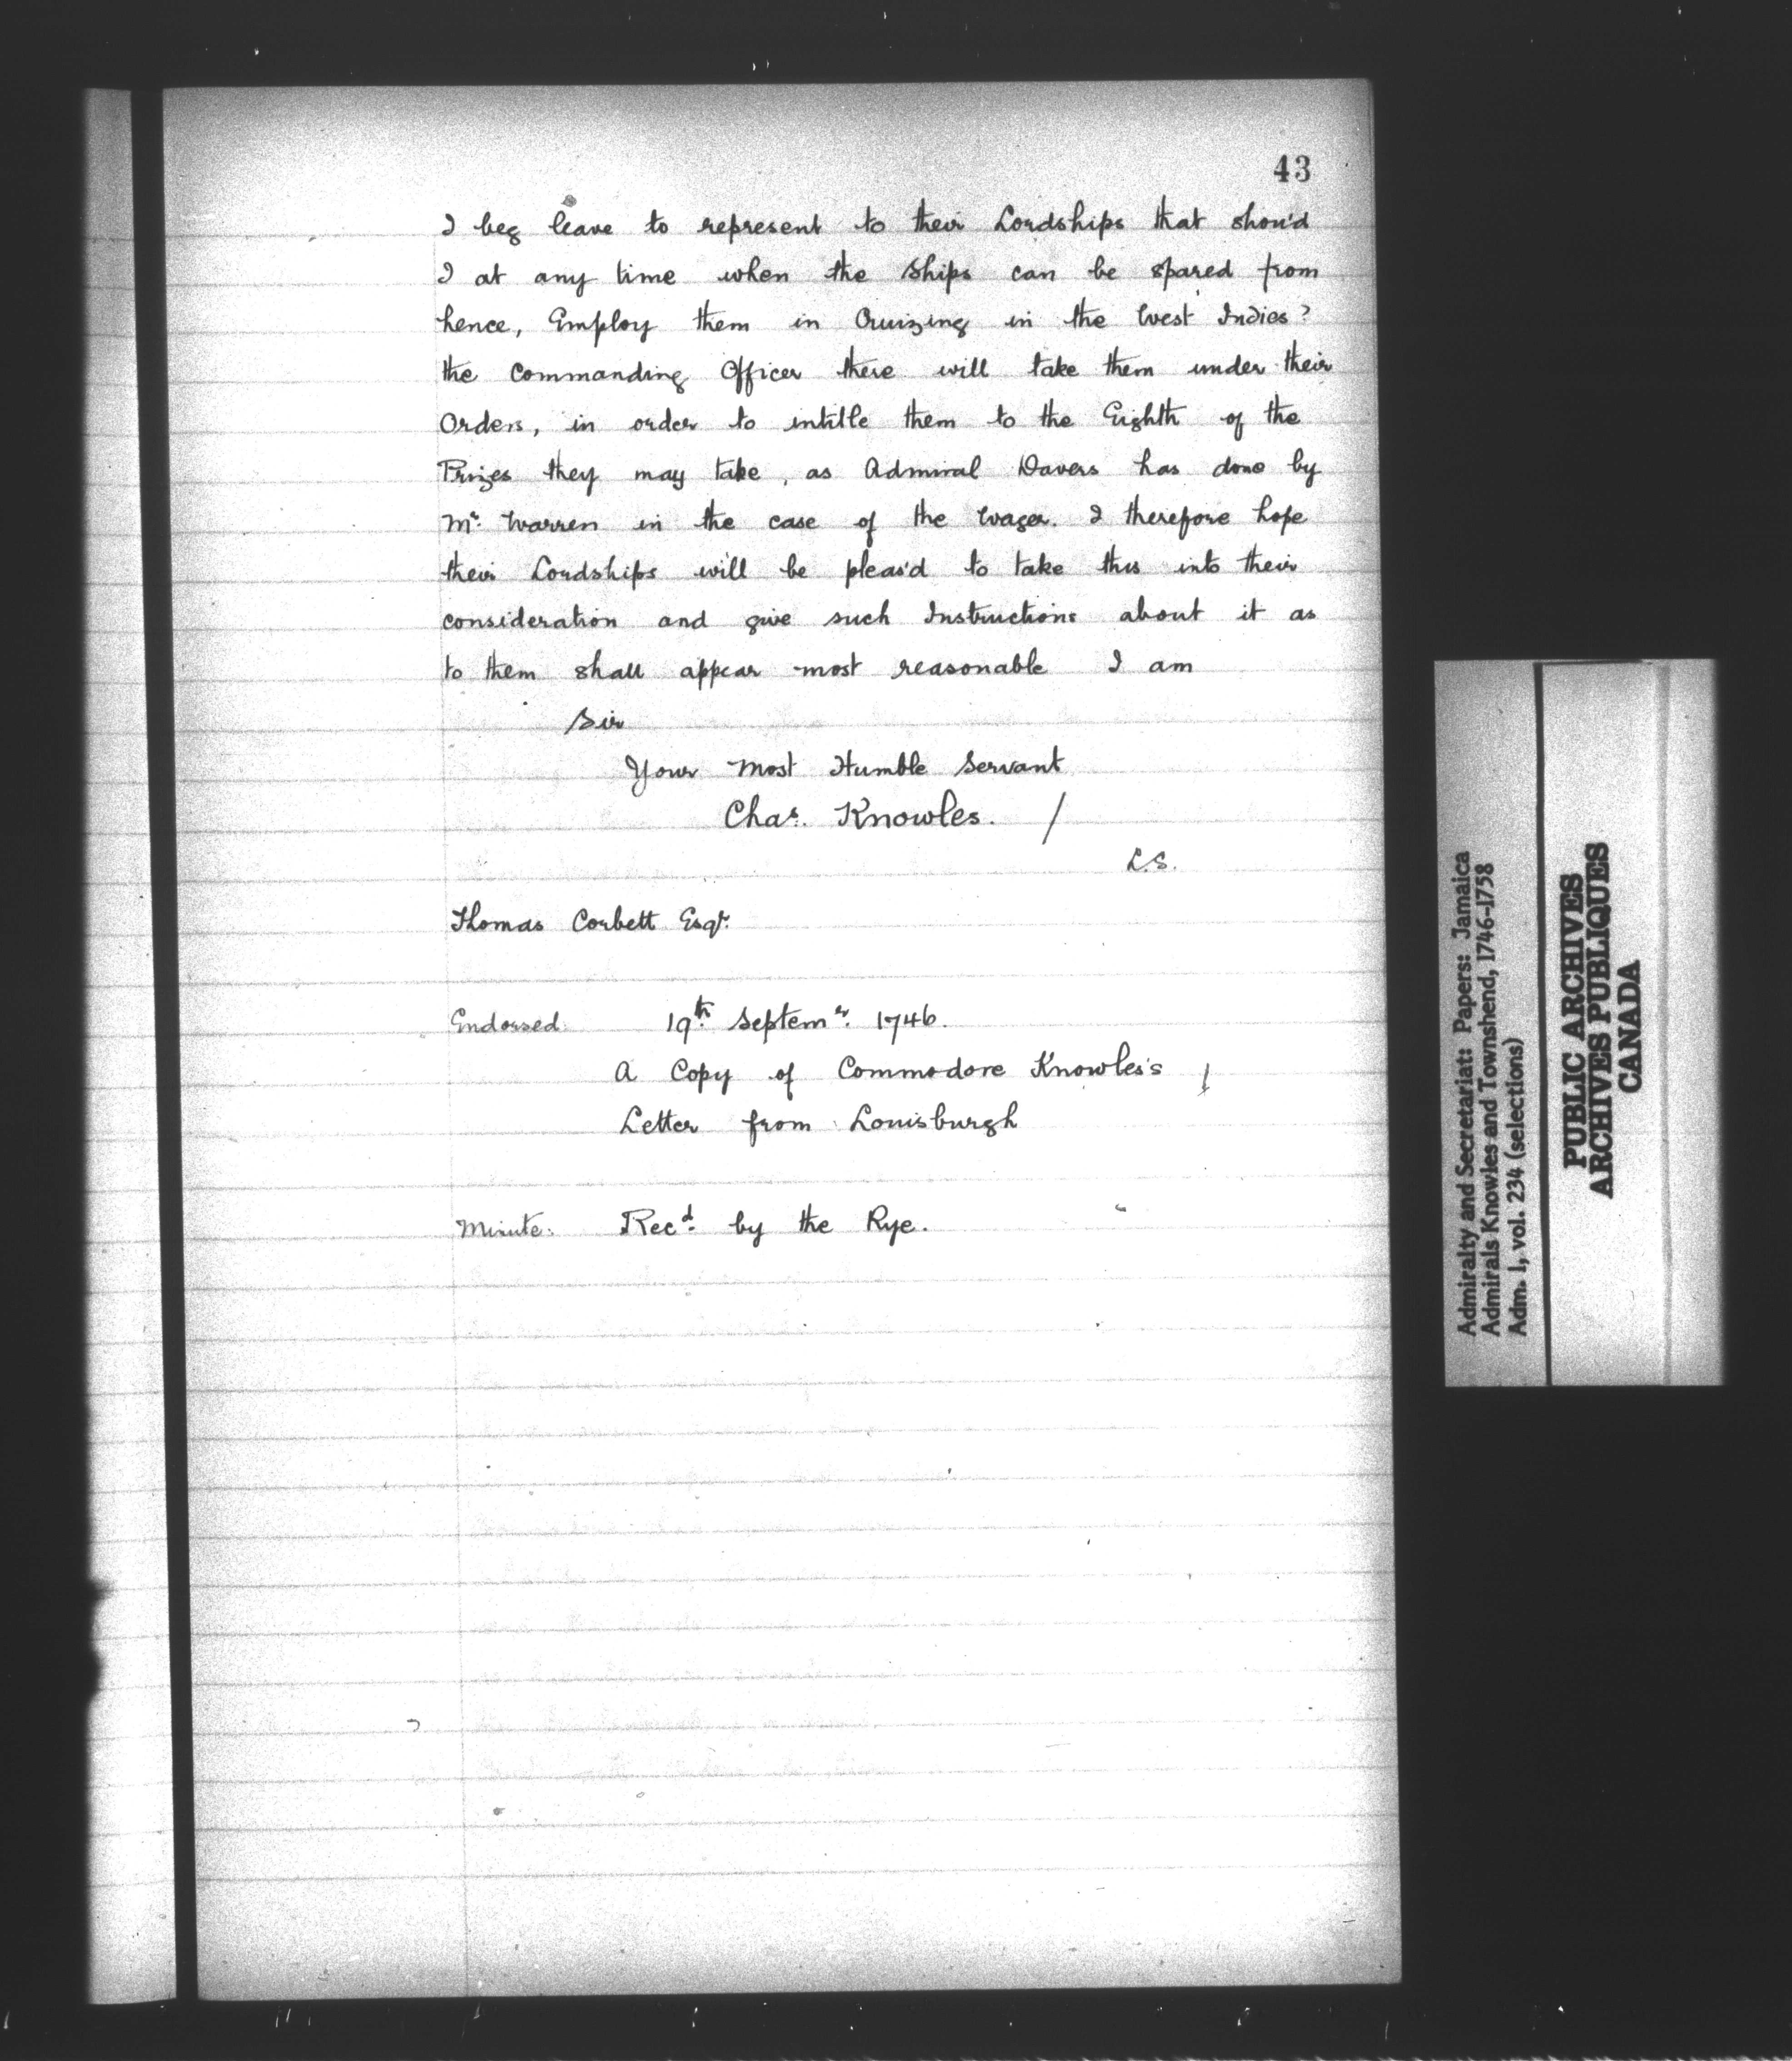 43
I beg leave to represent to their Lordships that shou'd
I at any time when the Ships can be spared from
hence, Employ them in Cruizing in the West Indies?
the Commanding Officer there will take them under their
Orders, in order to intitle them to the Eighth of the
Prizes they may take, as Admiral Davers has done by
Mr. Warren in the case of the Wager. I therefore hope
their Lordships will be pleas'd to take this into their
consideration and give such Instructions about it as
to them shall appear most reasonable I am
Sir
Your Most Humble Servant
Chas. Knowles. /
L.S.
Thomas Corbett Esqr.
Endorsed: 19th. Septemr. 1746.
A Copy of Commodore Knowles's
Letter from Louisburgh
Minute: Recd. by the Rye.
Admiralty and Secretariat: Papers: Jamaica
Admirals Knowles and Townshend, 1746-1758
Adm. 1, vol. 234 (selections)
PUBLIC ARCHIVES
ARCHIVES PUBLIQUES
CANADA